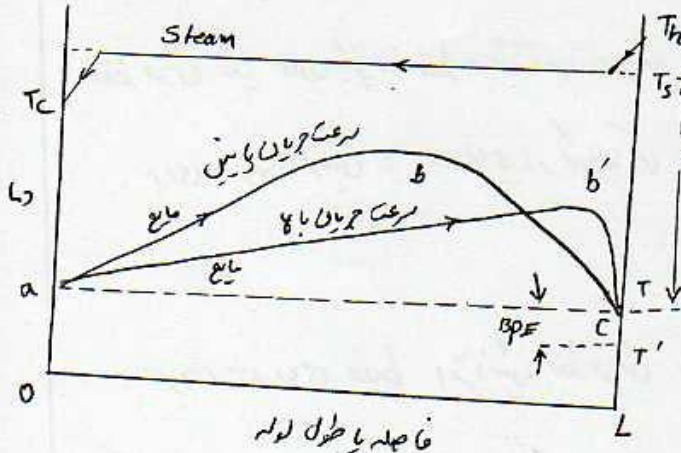 Steam
Th
Tc
Ts
سرعت جریان پایینی
b
b'
مایع
سرعت جریان بالا
مایع
a
T
BPE
C
T'
O
L
فاصله یا طول لوله